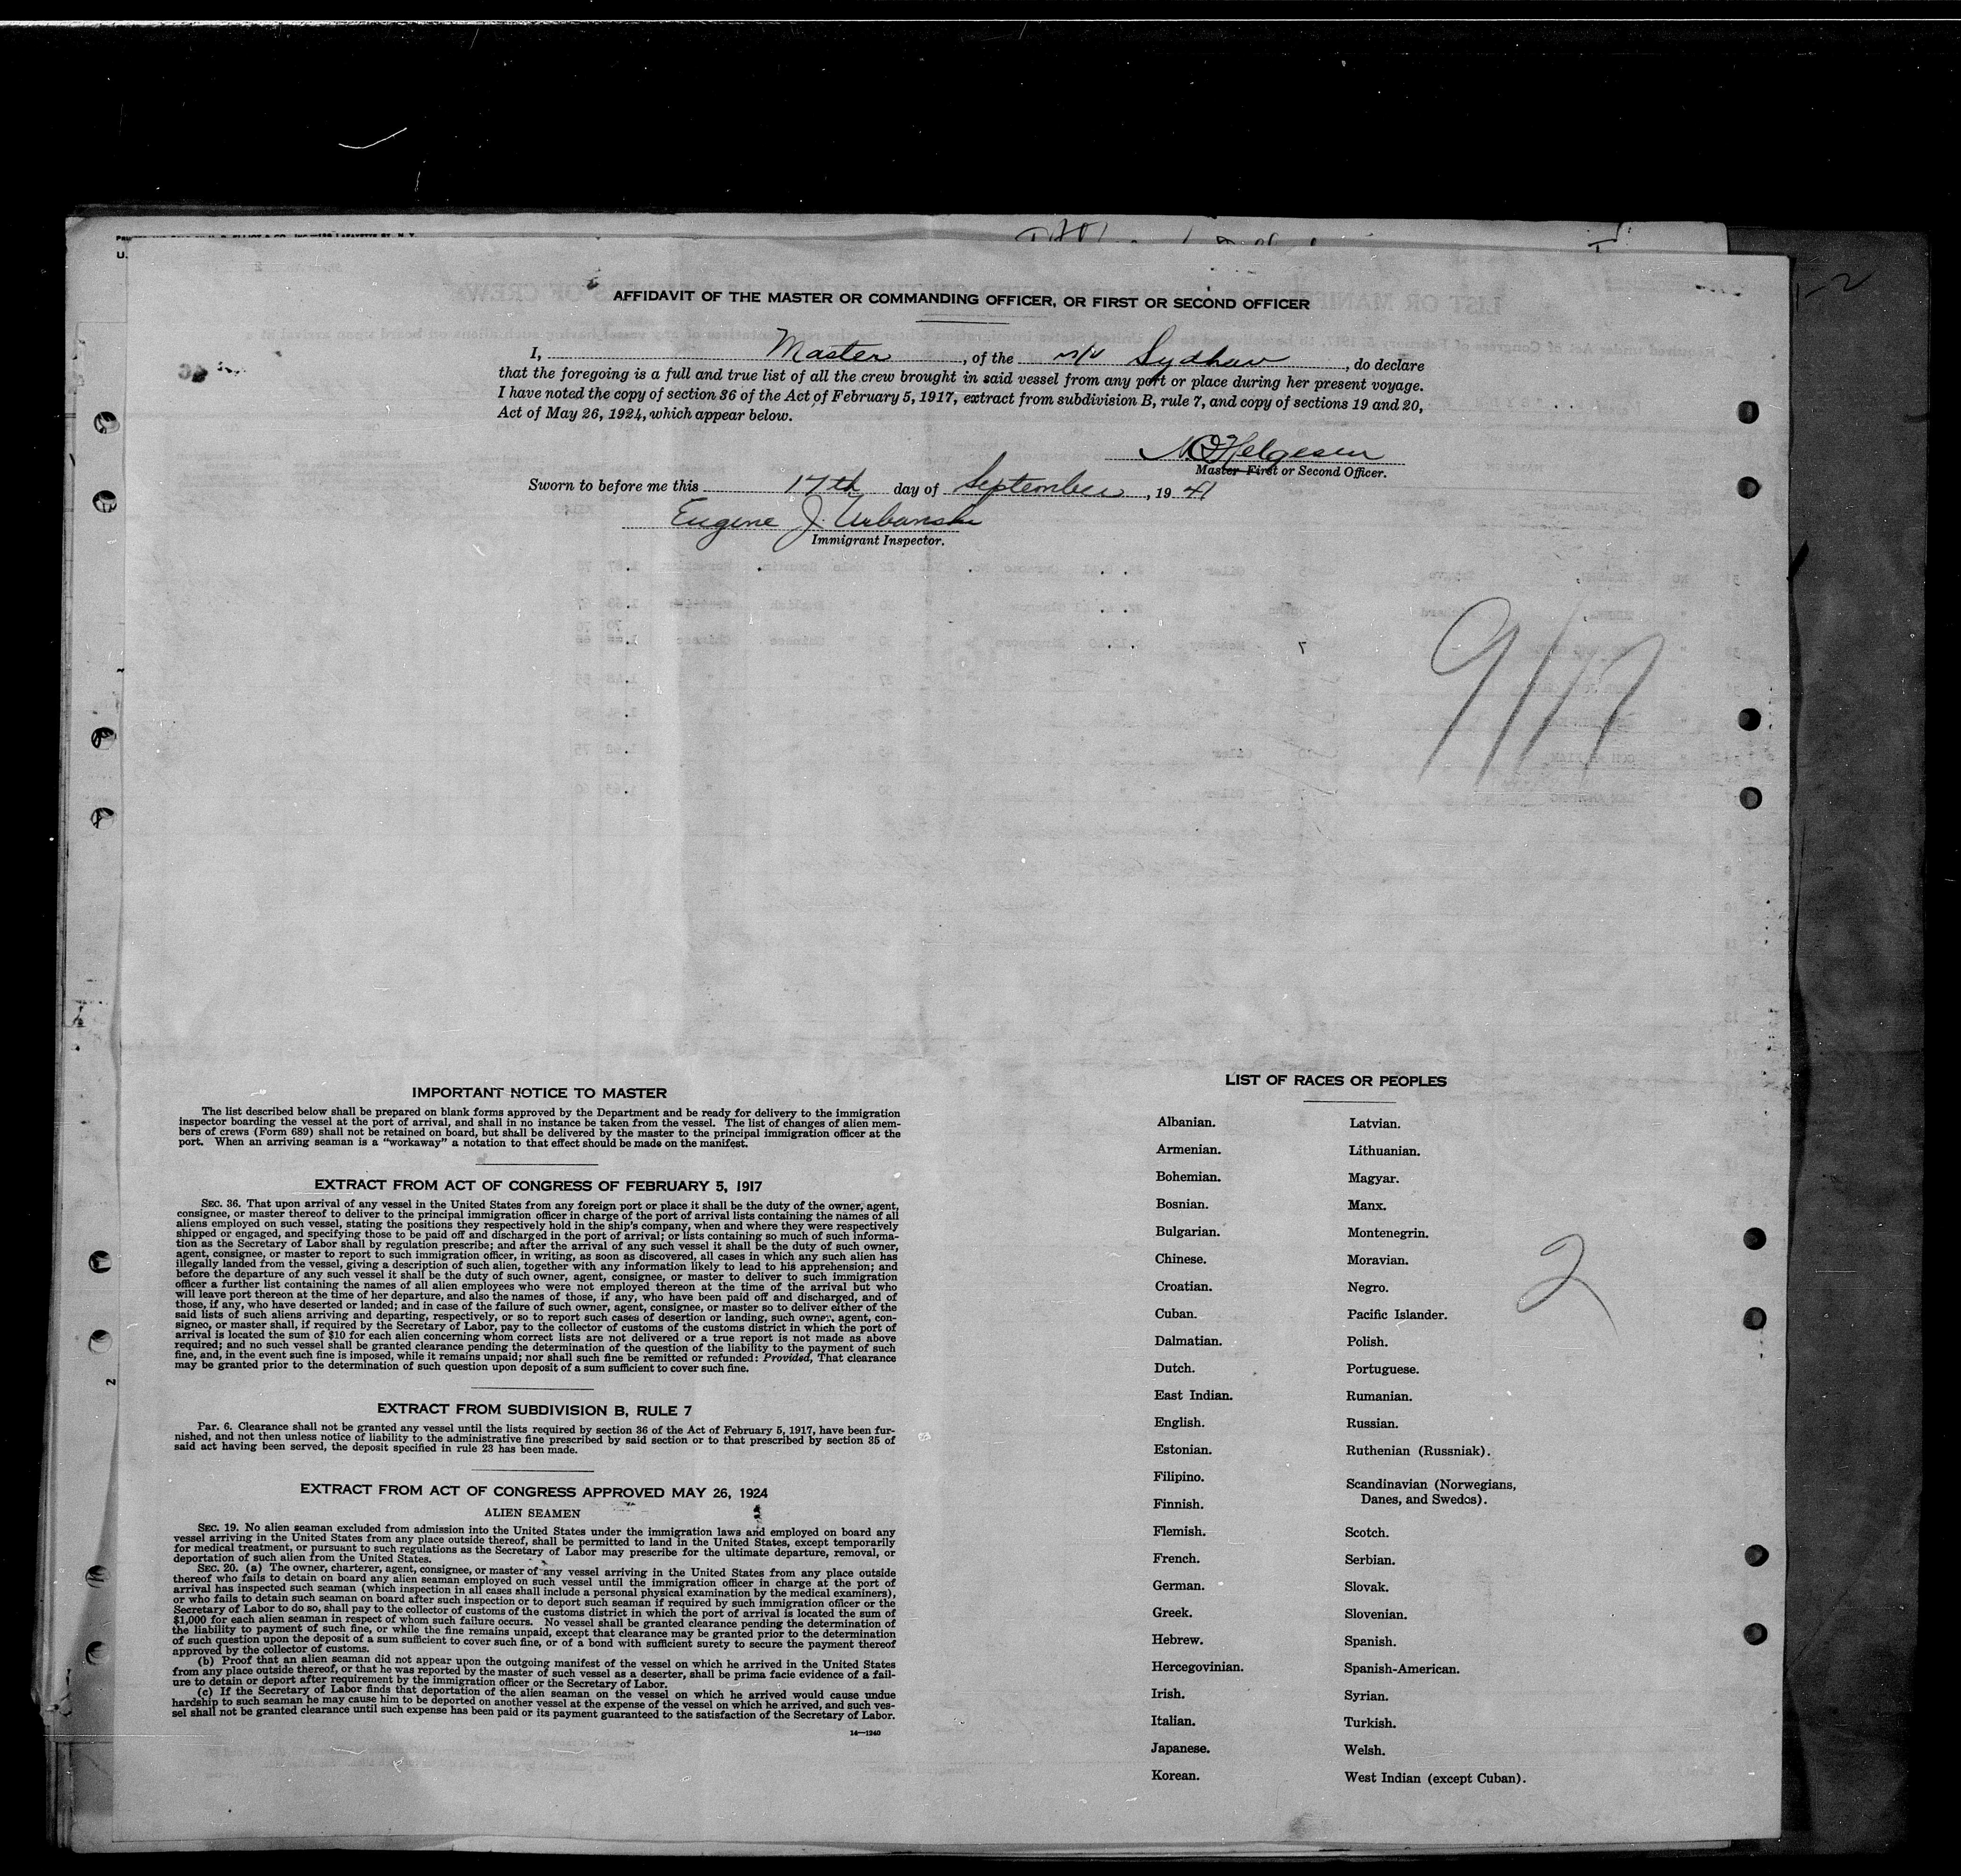 AFFIDAVIT OF THE MASTER OR COMMANDING OFFICER, OR FIRST OR SECOND OFFICER
I, Master, of the M/V Sydhav, do declare
that the foregoing is a full and true list of all the crew brought in said vessel from any port or place during her present voyage.
I have noted the copy of section 36 of the Act of February 5, 1917, extract from subdivision B, rule 7, and copy of sections 19 and 20,
Act of May 26, 1924, which appear below.
Helgesen
Master First or Second Officer.
Sworn to before me this 17th day of September, 1941
Eugene J. Urbanski
Immigrant Inspector.
9/17
IMPORTANT NOTICE TO MASTER
The list described below shall be prepared on blank forms approved by the Department and be ready for delivery to the immigration
inspector boarding the vessel at the port of arrival, and shall in no instance be taken from the vessel. The list of changes of alien mem-
bers of crews (Form 689) shall not be retained on board, but shall be delivered by the master to the principal immigration officer at the
port. When an arriving seaman is a "workaway" a notation to that effect should be made on the manifest.
EXTRACT FROM ACT OF CONGRESS OF FEBRUARY 5, 1917
SEC. 36. That upon arrival of any vessel in the United States from any foreign port or place it shall be the duty of the owner, agent,
consignee, or master thereof to deliver to the principal immigration officer in charge of the port of arrival lists containing the names of all
aliens employed on such vessel, stating the positions they respectively hold in the ship's company, when and where they were respectively
shipped or engaged, and specifying those to be paid off and discharged in the port of arrival; or lists containing so much of such informa-
tion as the Secretary of Labor shall by regulation prescribe; and after the arrival of any such vessel it shall be the duty of such owner,
agent, consignee, or master to report to such immigration officer, in writing, as soon as discovered, all cases in which any such alien has
illegally landed from the vessel, giving a description of such alien, together with any information likely to lead to his apprehension; and
before the departure of any such vessel it shall be the duty of such owner, agent, consignee, or master to deliver to such immigration
officer a further list containing the names of all alien employees who were not employed thereon at the time of the arrival but who
will leave port thereon at the time of her departure, and also the names of those, if any, who have been paid off and discharged, and of
those, if any, who have deserted or landed; and in case of the failure of such owner, agent, consignee, or master so to deliver either of the
said lists of such aliens arriving and departing, respectively, or so to report such cases of desertion or landing, such owner, agent, con-
signee, or master shall, if required by the Secretary of Labor, pay to the collector of customs of the customs district in which the port of
arrival is located the sum of $10 for each alien concerning whom correct lists are not delivered or a true report is not made as above
required; and no such vessel shall be granted clearance pending the determination of the question of the liability to the payment of such
fine, and, in the event such fine is imposed, while it remains unpaid; nor shall such fine be remitted or refunded: Provided, That clearance
may be granted prior to the determination of such question upon deposit of a sum sufficient to cover such fine.
EXTRACT FROM SUBDIVISION B, RULE 7
Par. 6. Clearance shall not be granted any vessel until the lists required by section 36 of the Act of February 5, 1917, have been fur-
nished, and not then unless notice of liability to the administrative fine prescribed by said section or to that prescribed by section 35 of
said act having been served, the deposit specified in rule 23 has been made.
EXTRACT FROM ACT OF CONGRESS APPROVED MAY 26, 1924
ALIEN SEAMEN
SEC. 19. No alien seaman excluded from admission into the United States under the immigration laws and employed on board any
vessel arriving in the United States from any place outside thereof, shall be permitted to land in the United States, except temporarily
for medical treatment, or pursuant to such regulations as the Secretary of Labor may prescribe for the ultimate departure, removal, or
deportation of such alien from the United States.
SEC. 20. (a) The owner, charterer, agent, consignee, or master of any vessel arriving in the United States from any place outside
thereof who fails to detain on board any alien seaman employed on such vessel until the immigration officer in charge at the port of
arrival has inspected such seaman (which inspection in all cases shall include a personal physical examination by the medical examiners),
or who fails to detain such seaman on board after such inspection or to deport such seaman if required by such immigration officer or the
Secretary of Labor to do so, shall pay to the collector of customs of the customs district in which the port of arrival is located the sum of
$1,000 for each alien seaman in respect of whom such failure occurs. No vessel shall be granted clearance pending the determination of
the liability to payment of such fine, or while the fine remains unpaid, except that clearance may be granted prior to the determination
of such question upon the deposit of a sum sufficient to cover such fine, or of a bond with sufficient surety to secure the payment thereof
approved by the collector of customs.
(b) Proof that an alien seaman did not appear upon the outgoing manifest of the vessel on which he arrived in the United States
from any place outside thereof, or that he was reported by the master of such vessel as a deserter, shall be prima facie evidence of a fail-
ure to detain or deport after requirement by the immigration officer or the Secretary of Labor.
(c) If the Secretary of Labor finds that deportation of the alien seaman on the vessel on which he arrived would cause undue
hardship to such seaman he may cause him to be deported on another vessel at the expense of the vessel on which he arrived, and such ves-
sel shall not be granted clearance until such expense has been paid or its payment guaranteed to the satisfaction of the Secretary of Labor.
14—1240
LIST OF RACES OR PEOPLES
Albanian.
Armenian.
Bohemian.
Bosnian.
Bulgarian.
Chinese.
Croatian.
Cuban.
Dalmatian.
Dutch.
East Indian.
English.
Estonian.
Filipino.
Finnish.
Flemish.
French.
German.
Greek.
Hebrew.
Hercegovinian.
Irish.
Italian.
Japanese.
Korean.
Latvian.
Lithuanian.
Magyar.
Manx.
Montenegrin.
Moravian.
Negro.
Pacific Islander.
Polish.
Portuguese.
Rumanian.
Russian.
Ruthenian (Russniak).
Scandinavian (Norwegians,
Danes, and Swedes).
Scotch.
Serbian.
Slovak.
Slovenian.
Spanish.
Spanish-American.
Syrian.
Turkish.
Welsh.
West Indian (except Cuban).
2